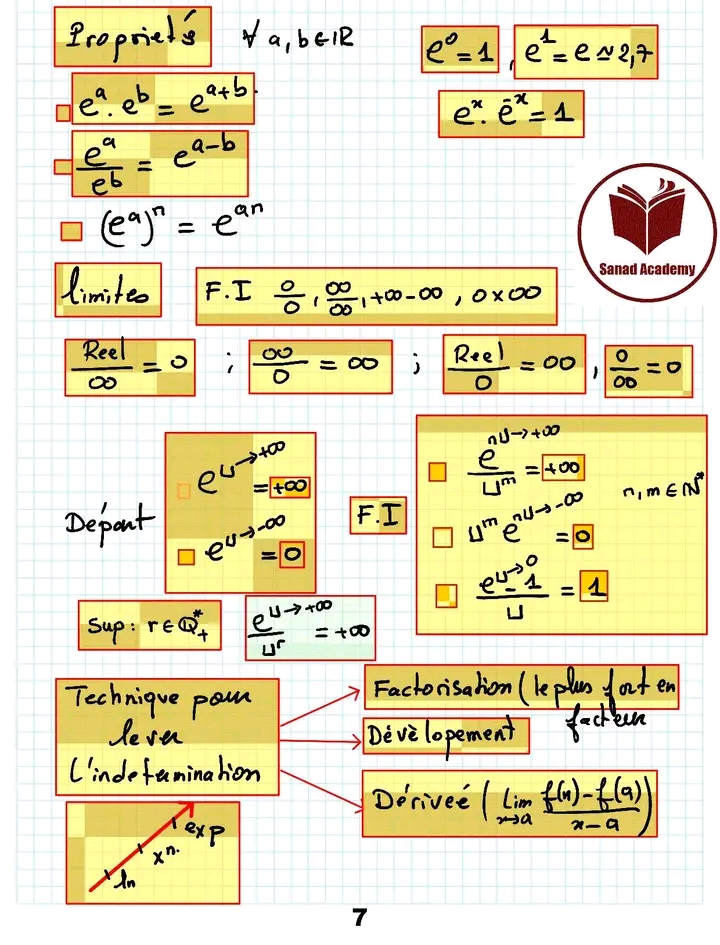 Proprietés ∀ a, b ∈ IR
e⁰ = 1 , e¹ = e ≃ 2,7
eᵃ . eᵇ = eᵃ⁺ᵇ.
eˣ . e⁻ˣ = 1
eᵃ / eᵇ = eᵃ⁻ᵇ
(eᵃ)ⁿ = eᵃⁿ
Sanad Academy
limites
F.I 0/0 , ∞/∞ , +∞-∞ , 0×∞
Reel/∞ = 0 ; ∞/0 = ∞ ; Reel/0 = ∞ , 0/∞ = 0
Départ
e^(U→+∞) = +∞
e^(U→-∞) = 0
F.I
e^(nU→+∞) / U^m = +∞
n, m ∈ IN*
U^m e^(nU→-∞) = 0
(e^(U→0) - 1) / U = 1
Sup: r ∈ ℚ*₊
e^(U→+∞) / U^r = +∞
Technique pour
lever
l'indetermination
Factorisation (le plus fort en
facteur
Dévèlopement
Dériveé (Lim x→a (f(x) - f(a)) / (x - a))
exp
xⁿ.
ln
7